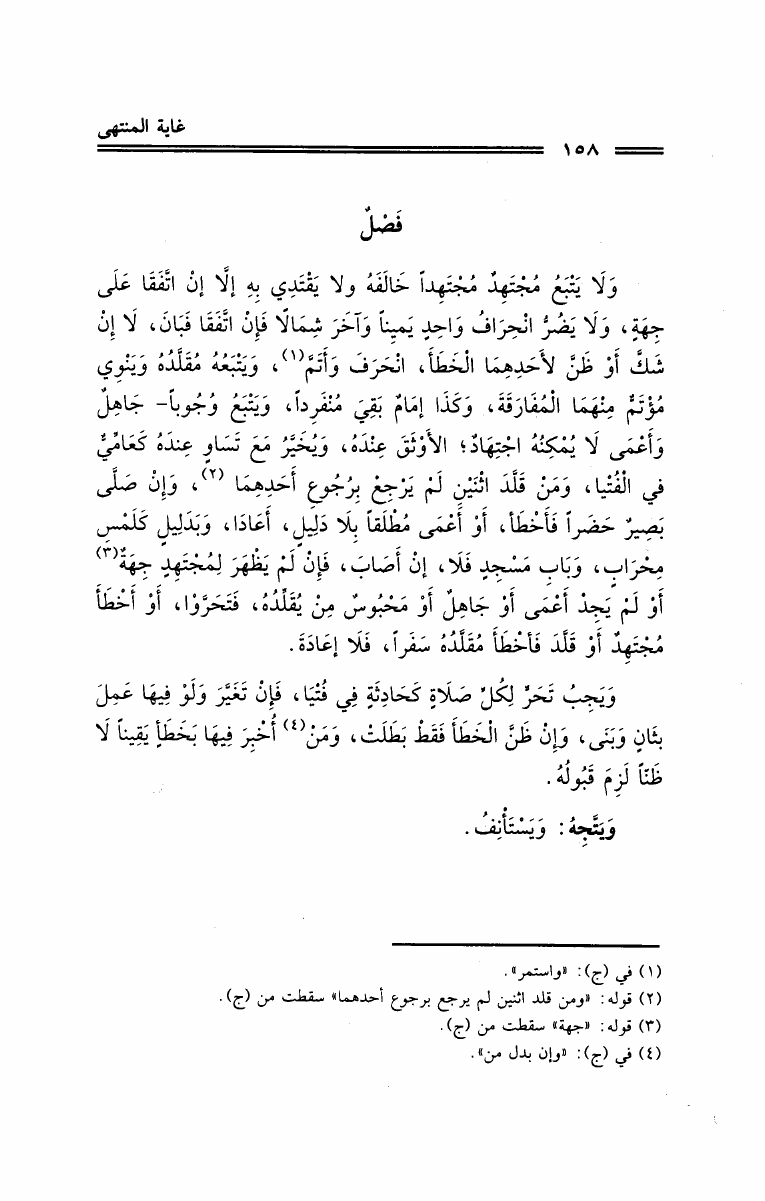 غاية المنتهى
١٥٨
فَصْلٌ
وَلَا يَتْبَعُ مُجْتَهِدٌ مُجْتَهِداً خَالَفَهُ ولا يَقْتَدِي بِهِ إلَّا إنْ اتَّفَقَا عَلَى
جِهَةٍ، وَلَا يَضُرُّ انْحِرَافُ وَاحِدٍ يَمِيناً وَآخَرَ شِمَالًا فَإنْ اتَّفَقَا فَبَانَ، لَا إنْ
شَكَّ أَوْ ظَنَّ لأَحَدِهِمَا الْخَطَأَ، انْحَرَفَ وَأَتَمَّ(١)، وَيَتْبَعُهُ مُقَلِّدُهُ وَيَنْوِي
مُؤْتَمٌّ مِنْهُمَا الْمُفَارَقَةَ، وَكَذَا إمَامٌ بَقِيَ مُنْفَرِداً، وَيَتْبَعُ وُجُوباً- جَاهِلٌ
وَأَعْمَى لَا يُمْكِنُهُ اجْتِهَادٌ؛ الأَوْثَقَ عِنْدَهُ، وَيُخَيَّرُ مَعَ تَسَاوٍ عِندَهُ كَعَامِّيٍّ
في الْفُتْيا، وَمَن قَلَّدَ اثْنَيْنِ لَمْ يَرْجِعْ بِرُجُوعِ أَحَدِهِمَا (٢)، وَإنْ صَلَّى
بَصِيرٌ حَضَراً فَأَخْطأَ، أَوْ أَعْمَى مُطْلَقاً بِلَا دَلِيلٍ، أَعَادَا، وَبَدَلِيلٍ كَلَمْسِ
مِحْرَابٍ، وَبَابِ مَسْجِدٍ فَلَا، إنْ أَصَابَ، فَإنْ لَمْ يَظْهَرَ لِمُجْتَهِدٍ جِهَةٌ(٣)
أَوْ لَمْ يَجِدْ أَعْمَى أَوْ جَاهِلٌ أَوْ مَحْبُوسٌ مِنْ يُقَلِّدُهُ، فَتَحَرَّوْا، أَوْ أَخْطَأَ
مُجْتَهِدٌ أَوْ قَلَّدَ فَأخْطَأَ مُقَلَّدُهُ سَفَراً، فَلَا إعَادَةَ.
وَيَجِبُ تَحَرٍّ لِكُلِّ صَلَاةٍ كَحَادِثَةٍ فِي فُتْيَا، فَإنْ تَغَيَّرَ وَلَوْ فِيهَا عَمِلَ
بِثَانٍ وَبَنَى، وَإنْ ظَنَّ الْخَطَأَ فَقَطْ بَطَلَتْ، وَمَنْ(٤) أُخْبِرَ فِيهَا بَخَطَأٍ يَقِيناً لَا
ظَنّاً لَزِمَ قَبُولُهُ.
وَيَتَّجِهُ: وَيَسْتَأْنِفُ.
(١) في (ج): «واستمر».
(٢) قوله: «ومن قلد اثنين لم يرجع برجوع أحدهما» سقطت من (ج).
(٣) قوله: «جهة» سقطت من (ج).
(٤) في (ج): «وإن بدل من».